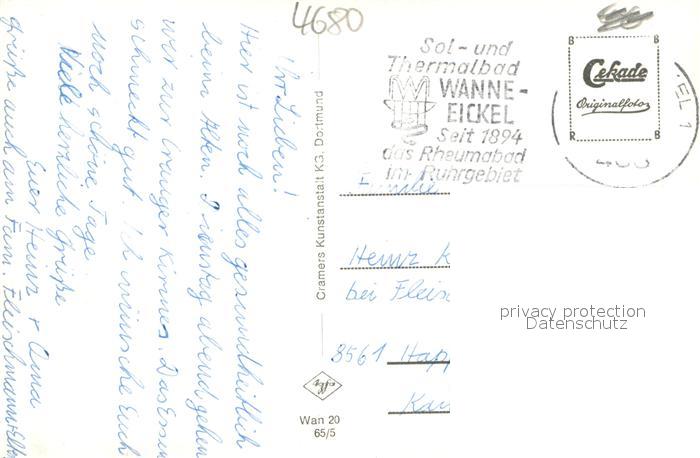 4680
Ihr Lieben!
Hier ist noch alles gesundheitlich
beim Alten. Dienstag abend gehen
wir zur Cranger Kirmes. Das Essen
schmeckt gut. Ich wünsche Euch
noch schöne Tage
Viele herzliche Grüße
Euer Heinz + Oma
Grüße auch an Fam. Fleischmann
Cramers Kunstanstalt KG, Dortmund
Sol- und
Thermalbad
WANNE-
EICKEL
Seit 1894
das Rheumabad
im Ruhrgebiet
EL 1
B B
Cekade
Originalfoto
R B
Familie
Heinz K
bei Fleis
8561 Happ
Kai
privacy protection
Datenschutz
Agfa
Wan 20
65/5